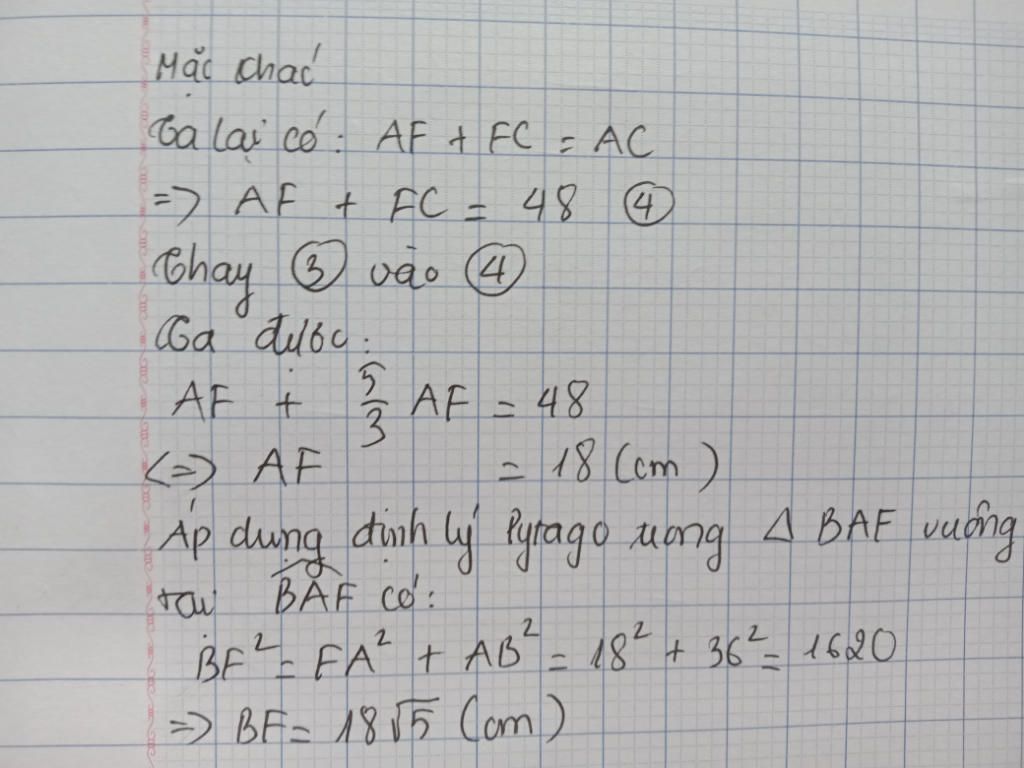 Mặc khác
Ta lại có: AF + FC = AC
=> AF + FC = 48 ④
Thay ③ vào ④
Ta được:
AF + 5/3 AF = 48
<=> AF = 18 (cm)
Áp dụng định lý Pytago trong Δ BAF vuông
tại \widehat{BAF} có:
BF² = FA² + AB² = 18² + 36² = 1620
=> BF = 18√5 (cm)